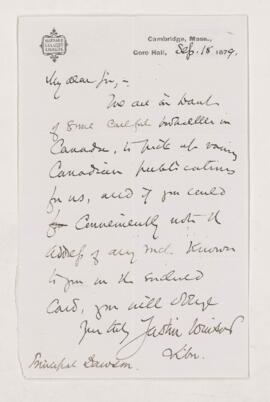 HARVARD
COLLEGE
LIBRARY
Cambridge, Mass.,
Gore Hall, Sep. 18 1879.
My dear Sir,-
We are in want
of some careful bookseller in
Canada, to pick up various
Canadian publications
for us, and if you could
conveniently note the
address of any such known
to you on the enclosed
card, you will oblige
Yours truly Justin Winsor
Libn.
Principal Dawson.